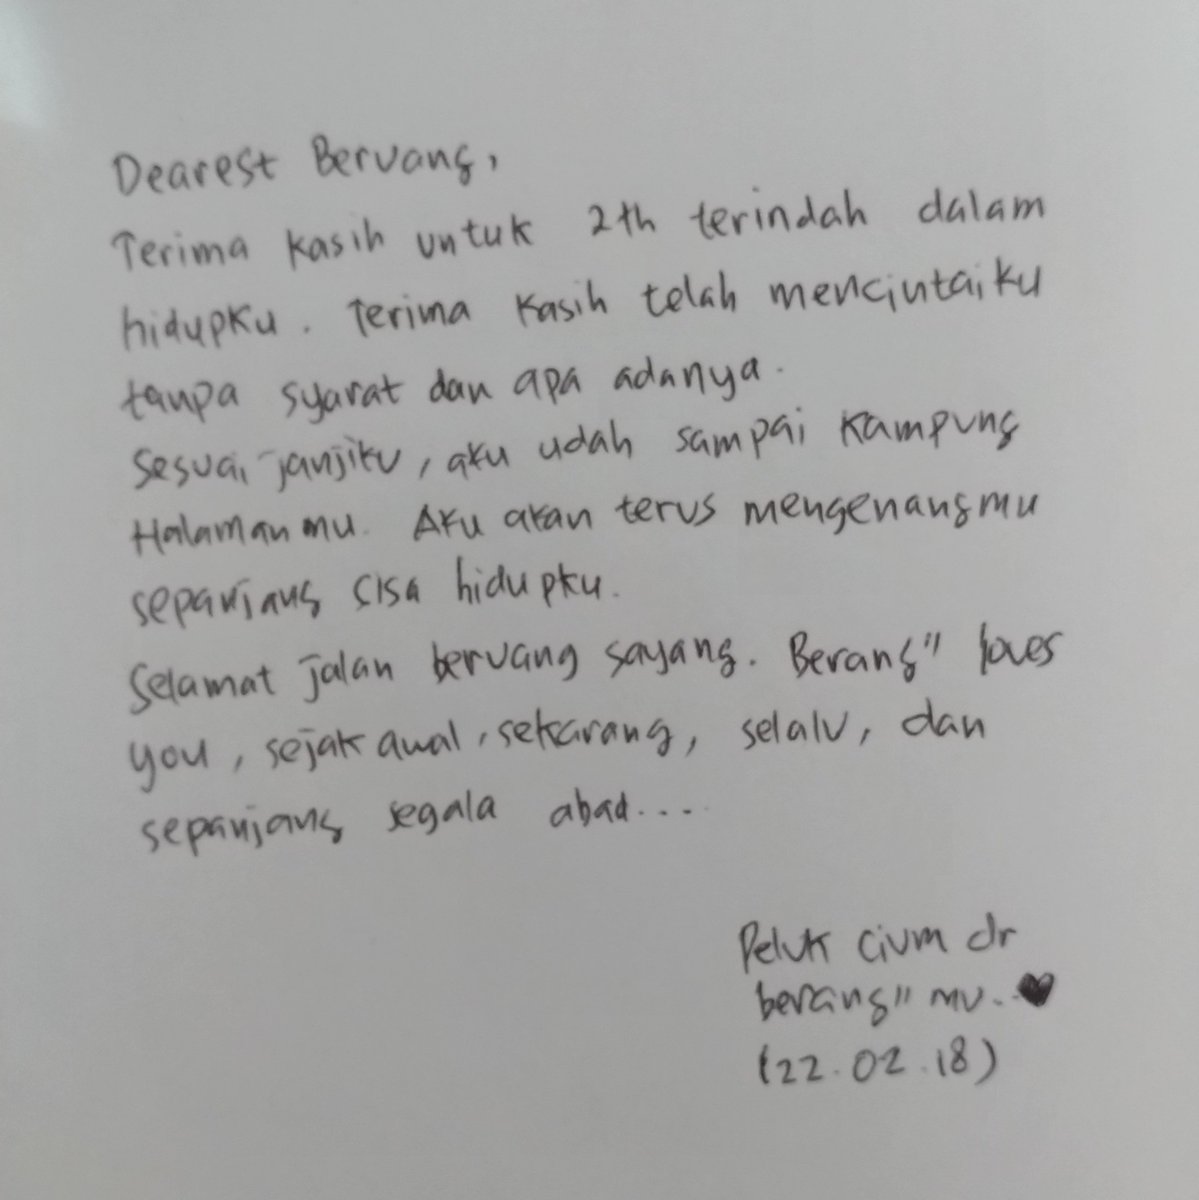 Dearest Beruang,
Terima kasih untuk 2th terindah dalam
hidupku. Terima kasih telah mencintaiku
tanpa syarat dan apa adanya.
Sesuai janjiku, aku udah sampai kampung
Halamanmu. Aku akan terus mengenangmu
sepanjang sisa hidupku.
Selamat jalan beruang sayang. Berang" loves
you, sejak awal, sekarang, selalu, dan
sepanjang segala abad....
Peluk cium dr
berang" mu..♥
(22.02.18)